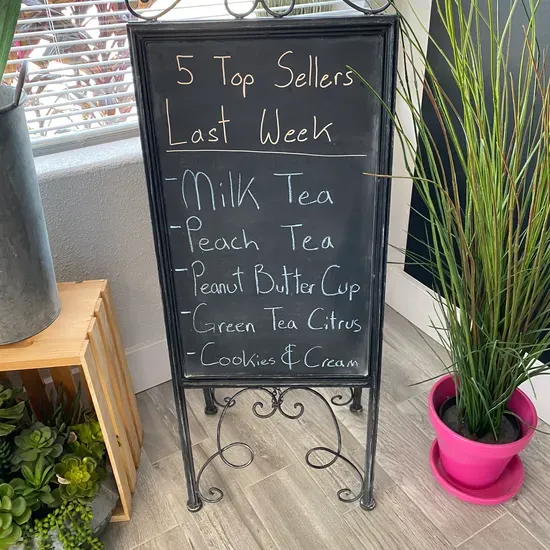 5 Top Sellers
Last Week
- Milk Tea
- Peach Tea
- Peanut Butter Cup
- Green Tea Citrus
- Cookies & Cream